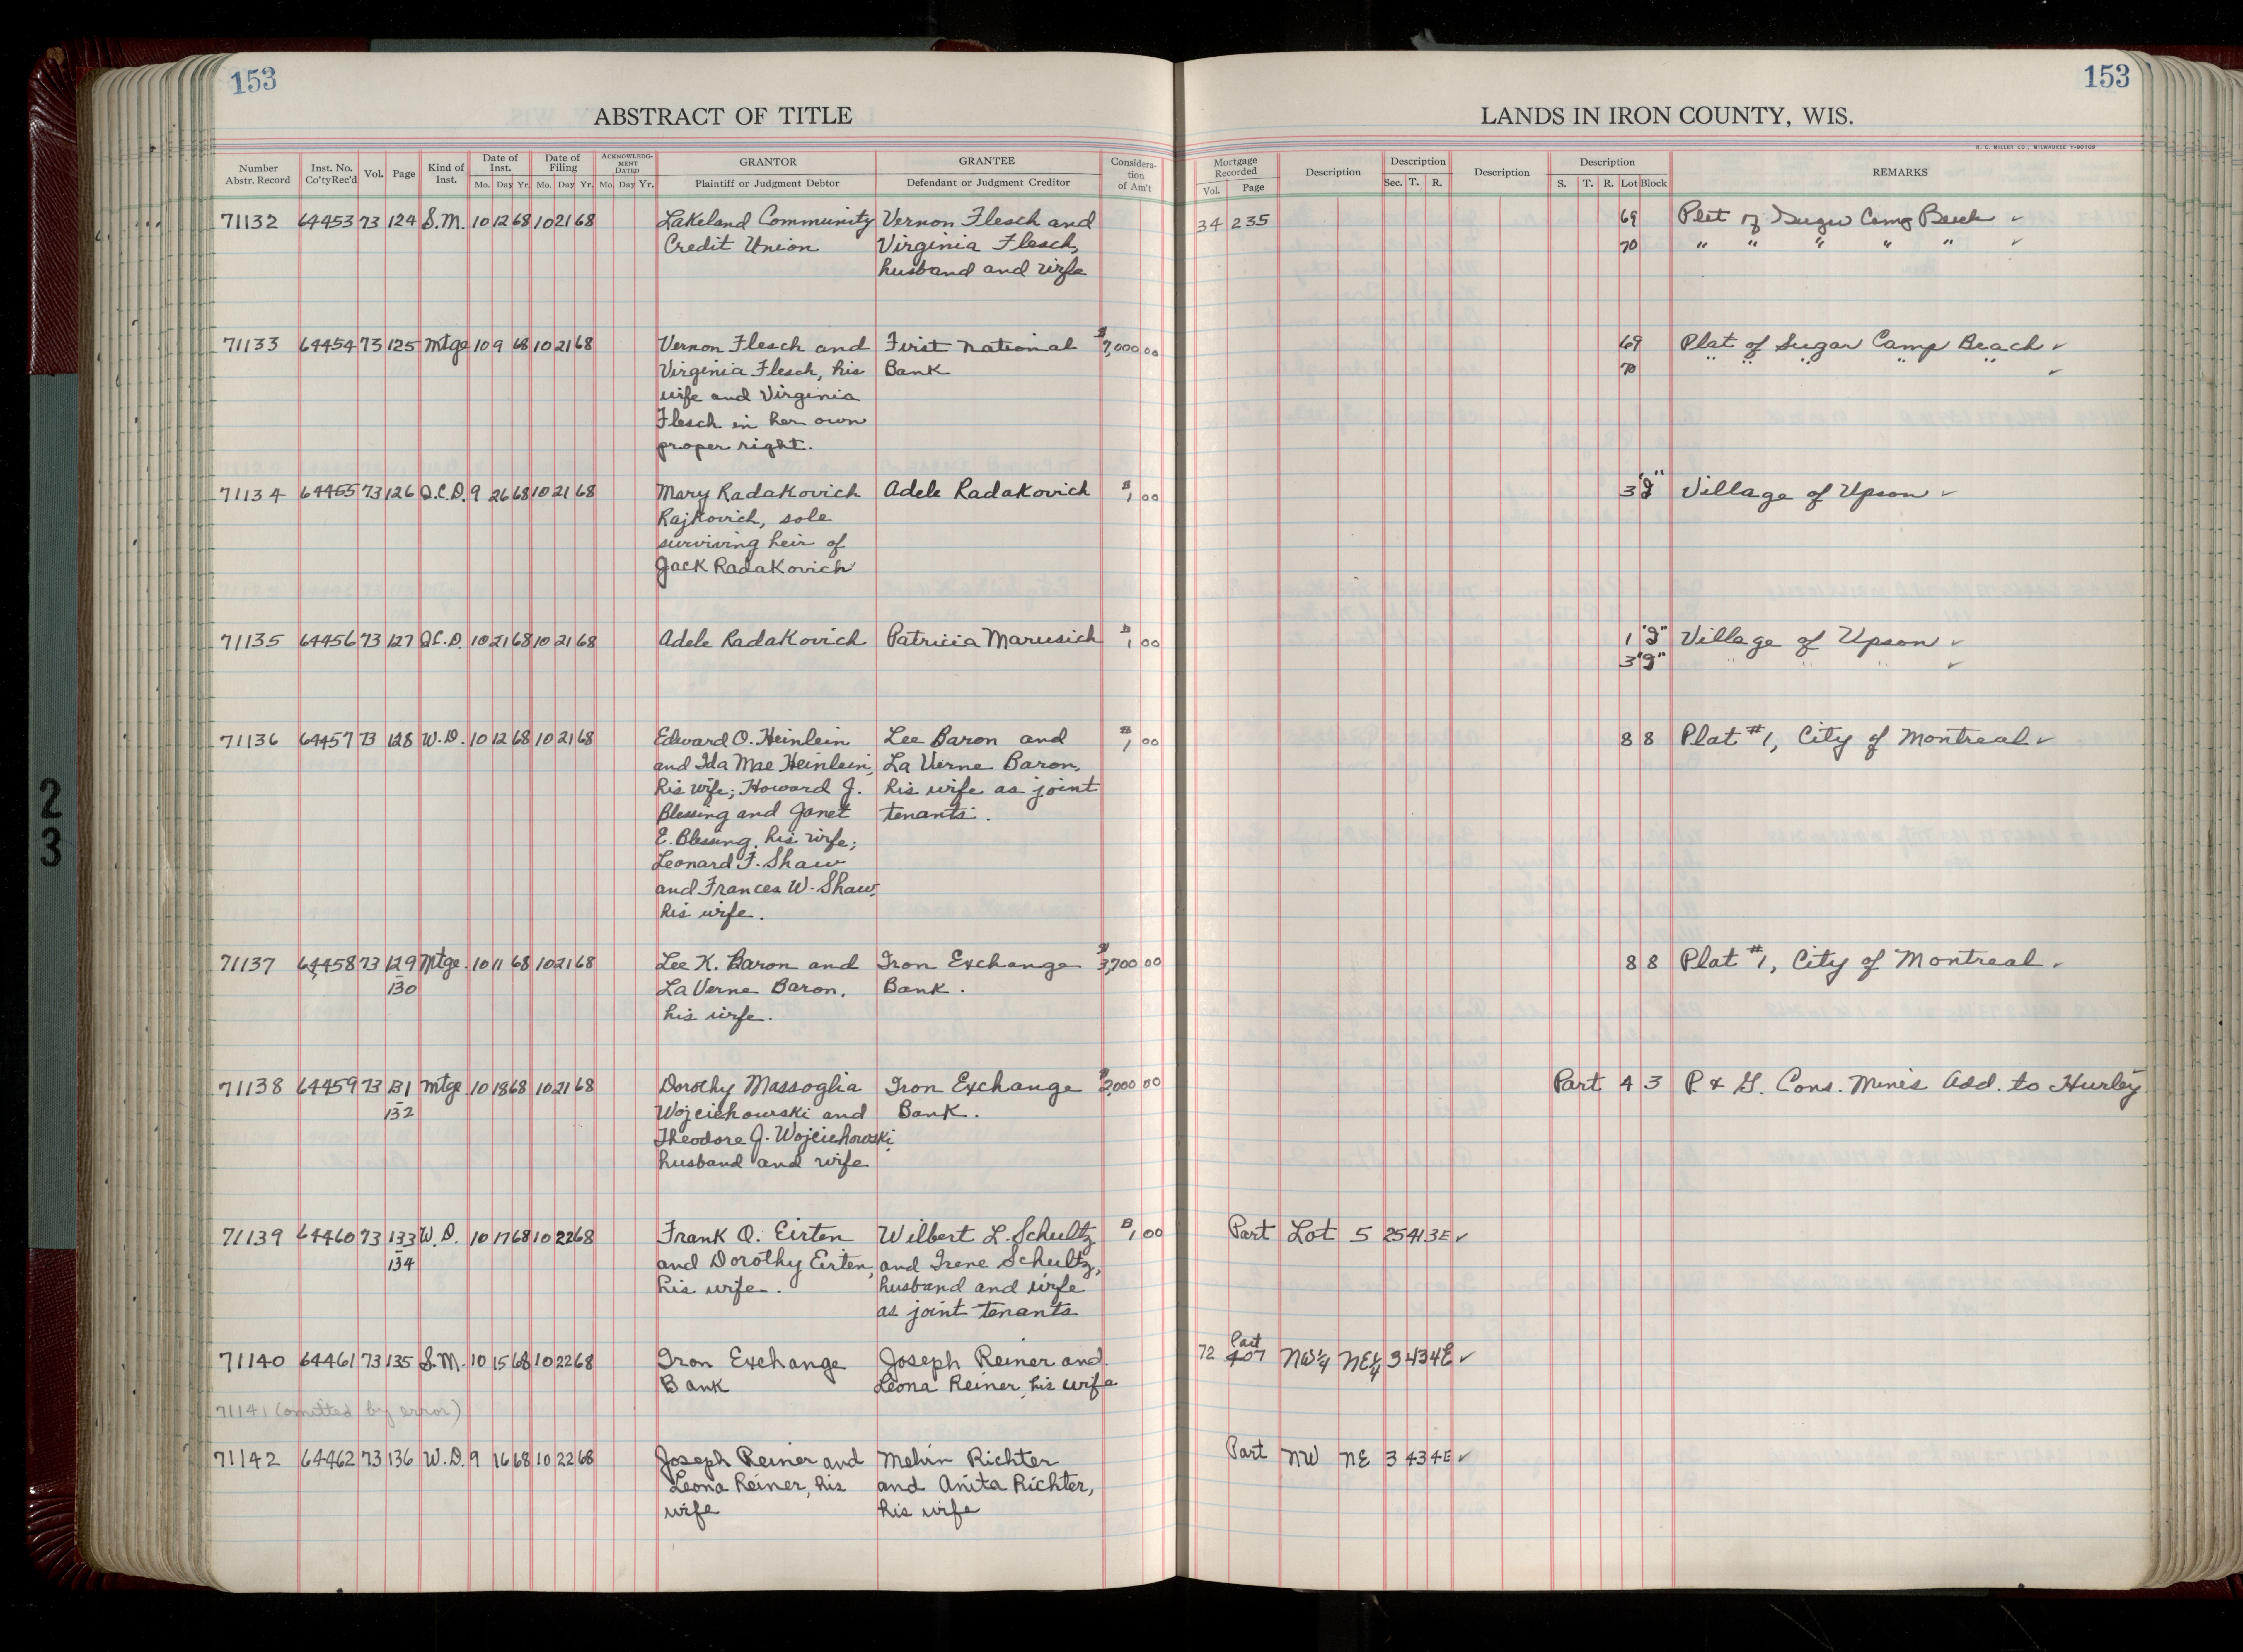 153
153
ABSTRACT OF TITLE
LANDS IN IRON COUNTY, WIS.
H. C. MILLER CO., MILWAUKEE
Number Abstr. Record Inst. No. Co'ty Rec'd Vol. Page Kind of Inst. Date of Inst. Mo. Day Yr. Date of Filing Mo. Day Yr. ACKNOWLEDGMENT DATED Mo. Day Yr. GRANTOR Plaintiff or Judgment Debtor GRANTEE Defendant or Judgment Creditor Consideration of Am't Mortgage Recorded Vol. Page Description Description Sec. T. R. Description Description S. T. R. Lot Block REMARKS
71132 64453 73 124 S.M. 10 12 68 10 21 68 Lakeland Community Vernon Flesch and 34 235 69 Plat of Sugar Camp Beach ✓
Credit Union Virginia Flesch, 70 " " " " " ✓
husband and wife
71133 64454 73 125 Mtge 10 9 68 10 21 68 Vernon Flesch and First National $7,000 00 69 Plat of Sugar Camp Beach ✓
Virginia Flesch, his Bank 70 " " " " " ✓
wife and Virginia
Flesch in her own
proper right.
71134 64455 73 126 Q.C.D. 9 26 68 10 21 68 Mary Radakovich Adele Radakovich $1 00 3 Village of Upson ✓
Rajkovich, sole
surviving heir of
Jack Radakovich
71135 64456 73 127 Q.C.D. 10 21 68 10 21 68 Adele Radakovich Patricia Marusich $1 00 1 Village of Upson ✓
3 " " " ✓
71136 64457 73 128 W.D. 10 12 68 10 21 68 Edward O. Heinlein Lee Baron and $1 00 8 8 Plat #1, City of Montreal ✓
and Ida Mae Heinlein, La Verne Baron,
his wife; Howard J. his wife as joint
Blessing and Janet tenants.
E. Blessing, his wife;
Leonard F. Shaw
and Frances W. Shaw,
his wife.
71137 64458 73 129 Mtge. 10 11 68 10 21 68 Lee K. Baron and Iron Exchange $3,700 00 8 8 Plat #1, City of Montreal ✓
130 La Verne Baron, Bank.
his wife.
71138 64459 73 131 Mtge. 10 18 68 10 21 68 Dorothy Massoglia Iron Exchange $2,000 00 Part 4 3 P & G. Cons. Mines Add. to Hurley
132 Wojciehowski and Bank.
Theodore J. Wojciehowski,
husband and wife
71139 64460 73 133 W.D. 10 17 68 10 22 68 Frank Q. Eirten Wilbert L. Schultz $1 00 Part Lot 5 25 41 3E ✓
134 and Dorothy Eirten, and Irene Schultz,
his wife. husband and wife
as joint tenants
71140 64461 73 135 S.M. 10 15 68 10 22 68 Iron Exchange Joseph Reiner and 72 407 Part NW¼ NE¼ 3 43 4E ✓
Bank Leona Reiner, his wife
71141 (omitted by error)
71142 64462 73 136 W.D. 9 16 68 10 22 68 Joseph Reiner and Melvin Richter Part NW NE 3 43 4E ✓
Leona Reiner, his and Anita Richter,
wife his wife
2
3